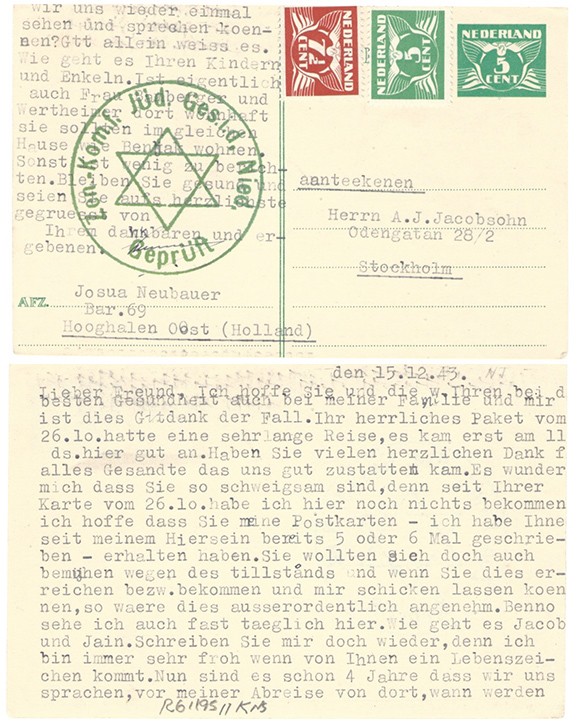 wir uns wieder einmal
sehen und sprechen koen-
nen?Gtt allein weiss es.
Wie geht es Ihren Kindern
und Enkeln.Ist eigentlich
auch Frau und
Wertheimer dort wohnhaft
sie sollen im gleichen
Hause wie wohnen.
Sonst ist wenig zu berich-
ten.Bleiben Sie gesund und
seien Sie aufs herzlichste
gegruesst von
Ihrem dankbaren und er-
gebenen.
Zen.-Kom. f. Jüd. Gestd. Nied.
Geprüft
NEDERLAND
7½ CENT
NEDERLAND
5 CENT
NEDERLAND
5 CENT
aanteekenen
Herrn A.J.Jacobsohn
Odengatan 28/2
Stockholm
AFZ.
Josua Neubauer
Bar.69
Hooghalen Oost (Holland)
den 15.12.43.
Lieber Freund, Ich hoffe Sie und die w.Ihren bei d
besten Gesundheit auch bei meiner Familie und mir
ist dies Gttdank der Fall.Ihr herrliches Paket vom
26.lo.hatte eine sehr lange Reise,es kam erst am ll
ds.hier gut an.Haben Sie vielen herzlichen Dank f
alles Gesandte das uns gut zustatten kam.Es wunder
mich dass Sie so schweigsam sind,denn seit Ihrer
Karte vom 26.lo.habe ich hier noch nichts bekommen
ich hoffe dass Sie meine Postkarten - ich habe Ihne
seit meinem Hiersein bereits 5 oder 6 Mal geschrie-
ben - erhalten haben.Sie wollten sich doch auch
bemühen wegen des tillstånds und wenn Sie dies er-
reichen bezw.bekommen und mir schicken lassen koen
nen,so waere dies ausserordentlich angenehm.Benno
sehe ich auch fast taeglich hier.Wie geht es Jacob
und Jain.Schreiben Sie mir doch wieder,denn ich
bin immer sehr froh wenn von Ihnen ein Lebenszei-
chen kommt.Nun sind es schon 4 Jahre dass wir uns
sprachen,vor meiner Abreise von dort,wann werden